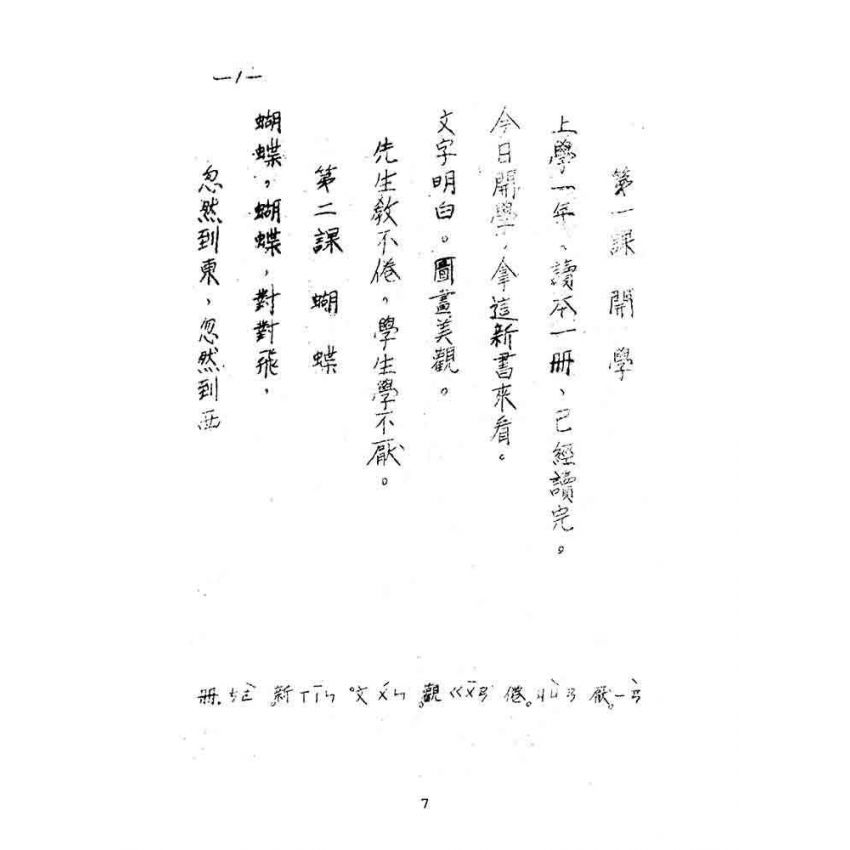 第一課 開學
上學一年、讀本一冊、已經讀完。
今日開學，拿這新書來看。
文字明白。圖畫美觀。
先生教不倦，學生學不厭。
第二課 蝴蝶
蝴蝶，蝴蝶，對對飛，
忽然到東，忽然到西
一/一
冊.ㄘㄜˋ 新ㄒㄧㄣ 文ㄨㄣ 觀ㄍㄨㄢ 倦ㄐㄩㄢˋ 厭ㄧㄢˋ
7